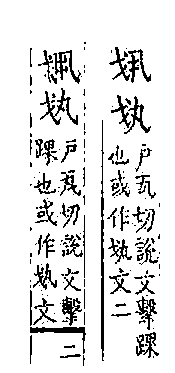 戶瓦切說文擊踝
也或作文二
戶瓦切說文擊
踝也或作文
二